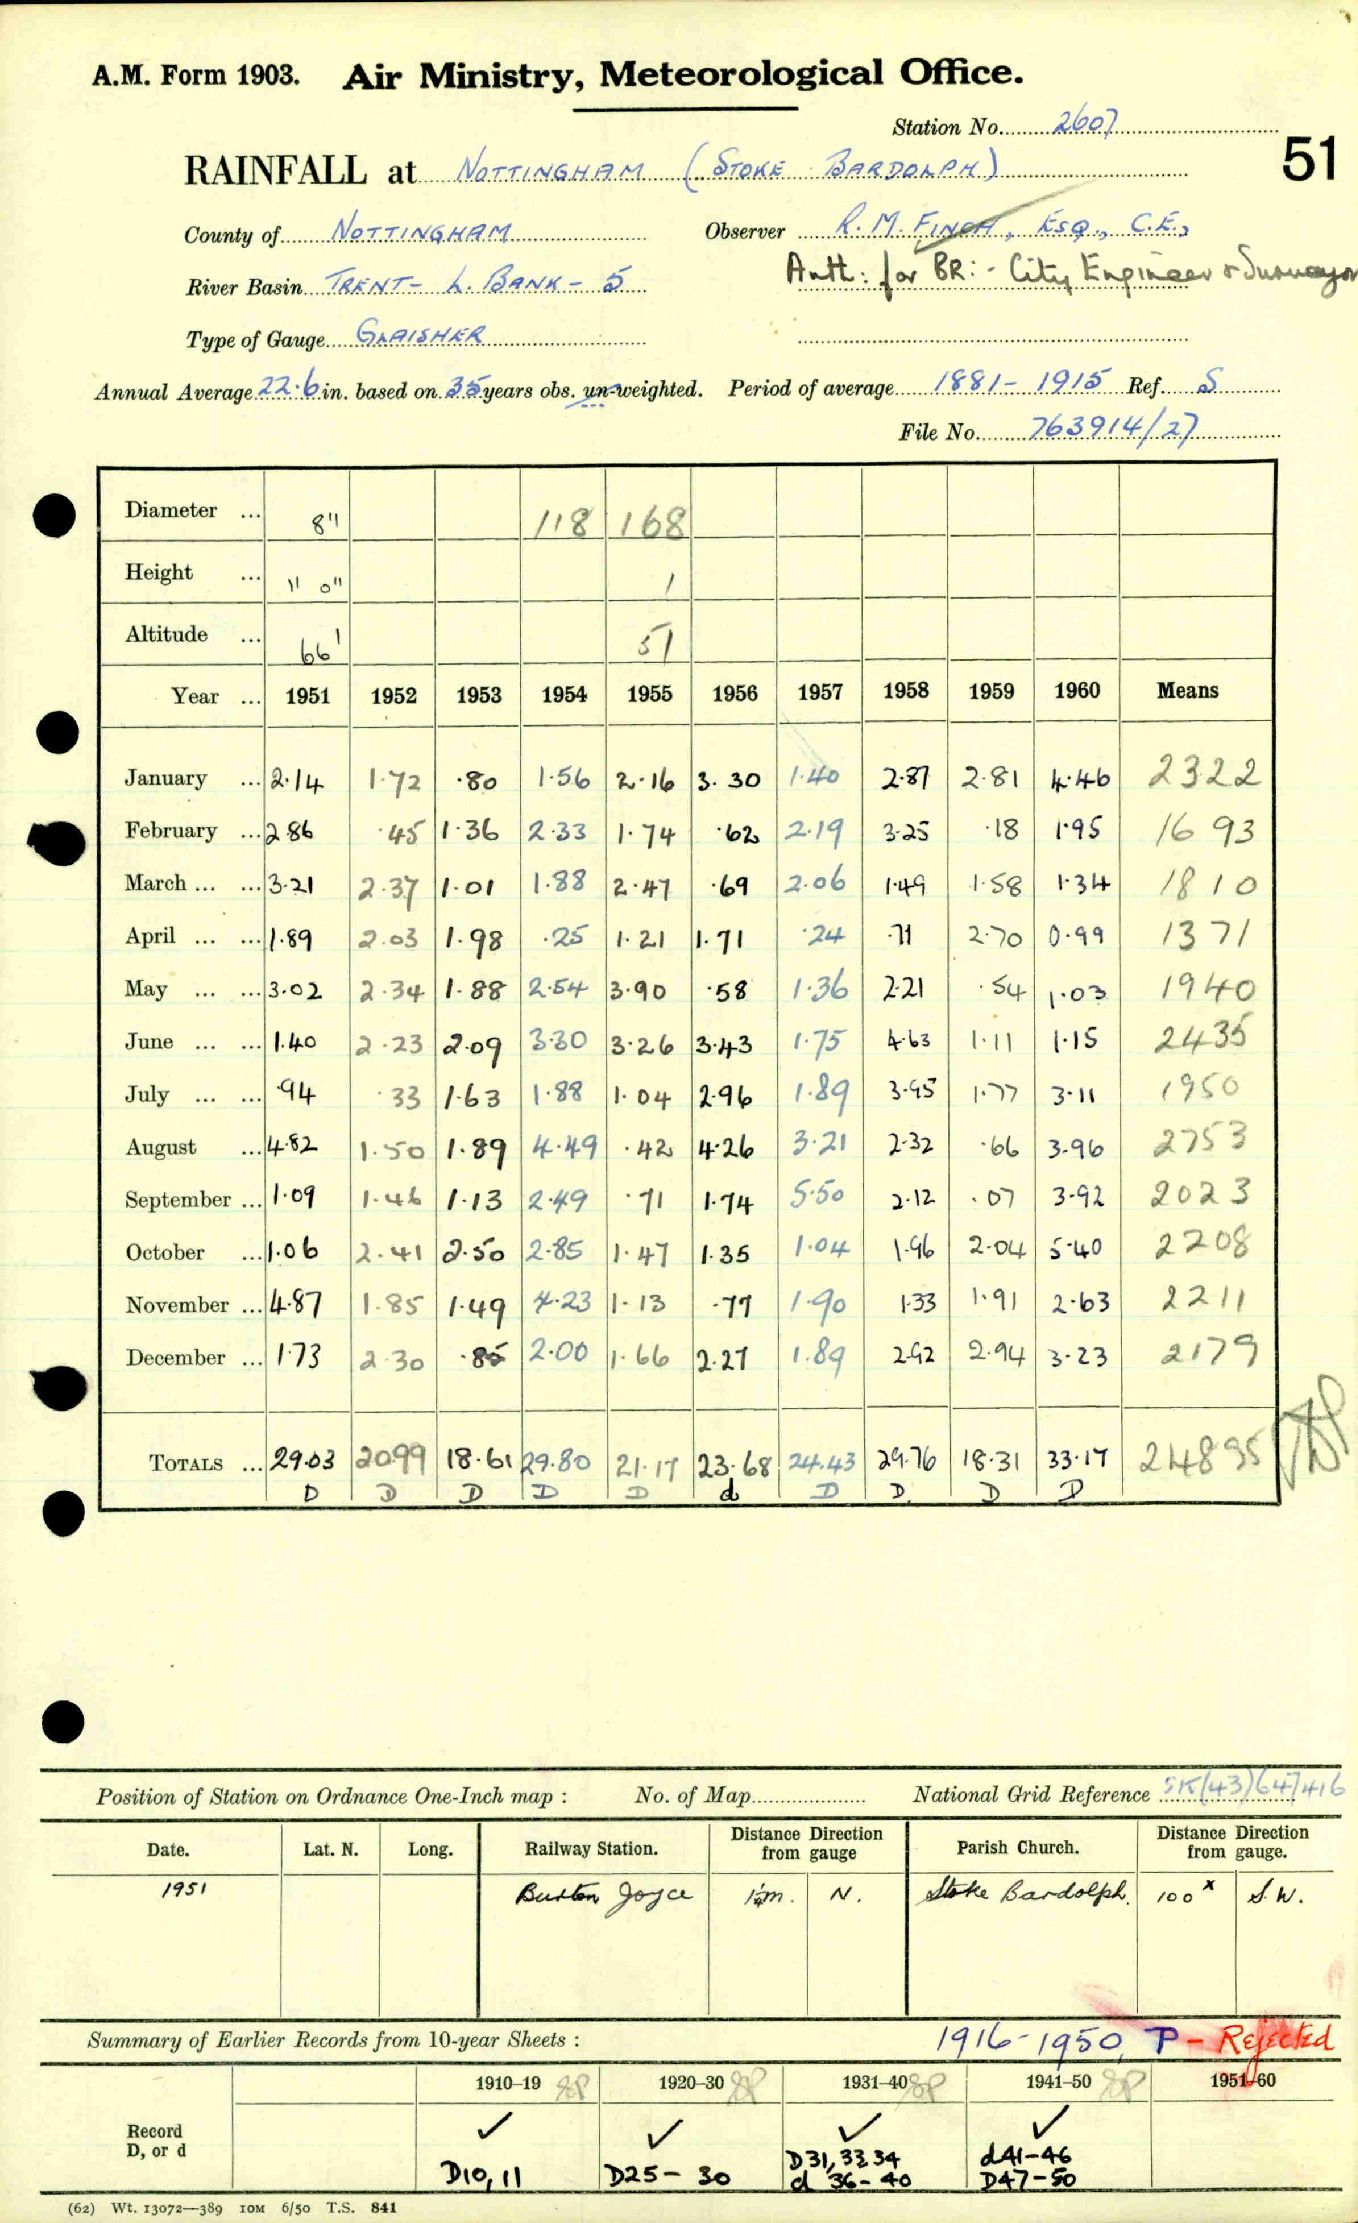 A.M. Form 1903. Air Ministry, Meteorological Office.
Station No. 2607
51
RAINFALL at NOTTINGHAM (STOKE BARDOLPH)
County of NOTTINGHAM Observer R. M. FINCH, ESQ., C.E.,
River Basin TRENT - L. BANK - 5 Auth: for BR:- City Engineer & Surveyor
Type of Gauge GLAISHER
Annual Average 22.6 in. based on 35 years obs. un-weighted. Period of average 1881 - 1915 Ref. S
File No. 763914/27
Diameter ... 8" 118 168
Height ... 1' 0" 1
Altitude ... 66' 51
Year ... 1951 1952 1953 1954 1955 1956 1957 1958 1959 1960 Means
January ... 2.14 1.72 .80 1.56 2.16 3.30 1.40 2.87 2.81 4.46 2322
February ... 2.86 .45 1.36 2.33 1.74 .62 2.19 3.25 .18 1.95 1693
March ... ... 3.21 2.37 1.01 1.88 2.47 .69 2.06 1.49 1.58 1.34 1810
April ... ... 1.89 2.03 1.98 .25 1.21 1.71 .24 .71 2.70 0.99 1371
May ... ... 3.02 2.34 1.88 2.54 3.90 .58 1.36 2.21 .54 1.03 1940
June ... ... 1.40 2.23 2.09 3.30 3.26 3.43 1.75 4.63 1.11 1.15 2435
July ... ... .94 .33 1.63 1.88 1.04 2.96 1.89 3.95 1.77 3.11 1950
August ... 4.82 1.50 1.89 4.49 .42 4.26 3.21 2.32 .66 3.96 2753
September ... 1.09 1.46 1.13 2.49 .71 1.74 5.50 2.12 .07 3.92 2023
October ... 1.06 2.41 2.50 2.85 1.47 1.35 1.04 1.96 2.04 5.40 2208
November ... 4.87 1.85 1.49 4.23 1.13 .77 1.90 1.33 1.91 2.63 2211
December ... 1.73 2.30 .85 2.00 1.66 2.27 1.89 2.92 2.94 3.23 2179
TOTALS ... 29.03 20.99 18.61 29.80 21.17 23.68 24.43 29.76 18.31 33.17 24895
D D D D D d D D D D
Position of Station on Ordnance One-Inch map : No. of Map National Grid Reference SK(43)647416
Date. Lat. N. Long. Railway Station. Distance Direction from gauge Parish Church. Distance Direction from gauge.
1951 Burton Joyce N. Stoke Bardolph. 100x S.W.
Summary of Earlier Records from 10-year Sheets : 1916-1950, P - Rejected
1910–19 1920–30 1931–40 1941–50 1951–60
Record ✓ ✓ ✓ ✓
D, or d D10, 11 D25 - 30 D31, 33, 34 d41-46
d 36-40 D47-50
(62) Wt. 13072—389 10M 6/50 T.S. 841